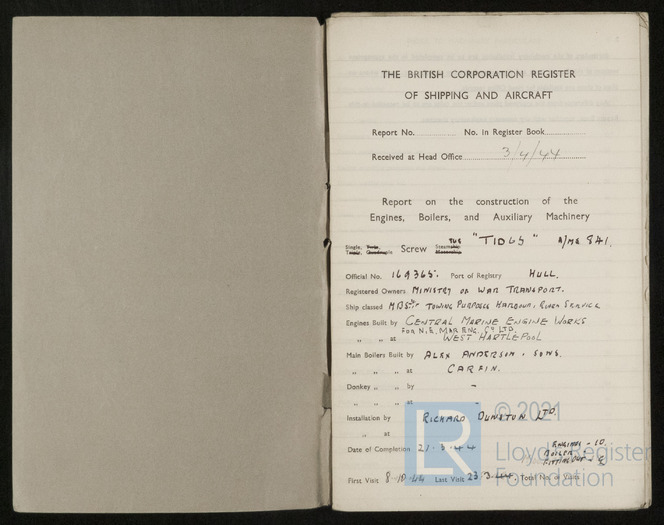 THE BRITISH CORPORATION REGISTER
OF SHIPPING AND AIRCRAFT
Report No. No. in Register Book
Received at Head Office 3/4/44
Report on the construction of the
Engines, Boilers, and Auxiliary Machinery
Single, Twin, Triple, Quadruple Screw Steamship Motorship TUG "TID 65" Y/No 841.
Official No. 169365. Port of Registry HULL.
Registered Owners MINISTRY OF WAR TRANSPORT.
Ship classed MBS* TOWING PURPOSES HARBOUR & RIVER SERVICE
Engines Built by CENTRAL MARINE ENGINE WORKS
FOR N.E. MAR ENG. Co LTD.
" " at WEST HARTLEPOOL
Main Boilers Built by ALEX ANDERSON & SONS.
" " " at CARFIN.
Donkey " " by -
" " " at -
Installation by RICHARD DUNSTON LTD.
" at
Date of Completion 21-3-44
ENGINES - 10
BOILER
FITTING OUT - 8
First Visit 8-10-44 Last Visit 23-3-44. Total No. of Visits
LR
© 2021
Lloyd's Register
Foundation